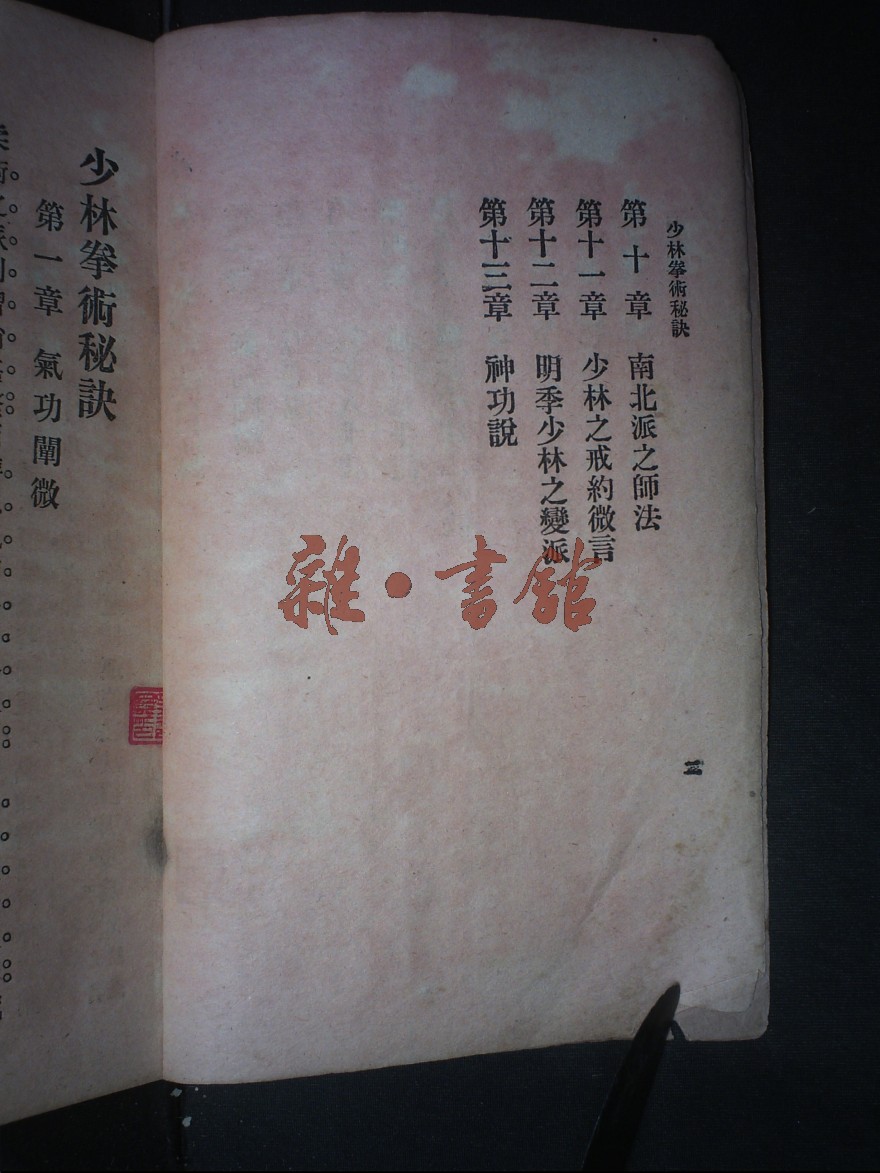 少林拳術秘訣
第十章　南北派之師法
第十一章　少林之戒約微言
第十二章　明季少林之變派
第十三章　神功說
二
雜·書館
少林拳術秘訣
第一章　氣功闡微